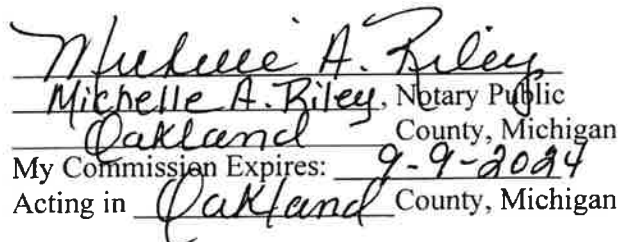 Michelle A. Riley
Michelle A. Riley, Notary Public
Oakland County, Michigan
My Commission Expires: 9-9-2024
Acting in Oakland County, Michigan